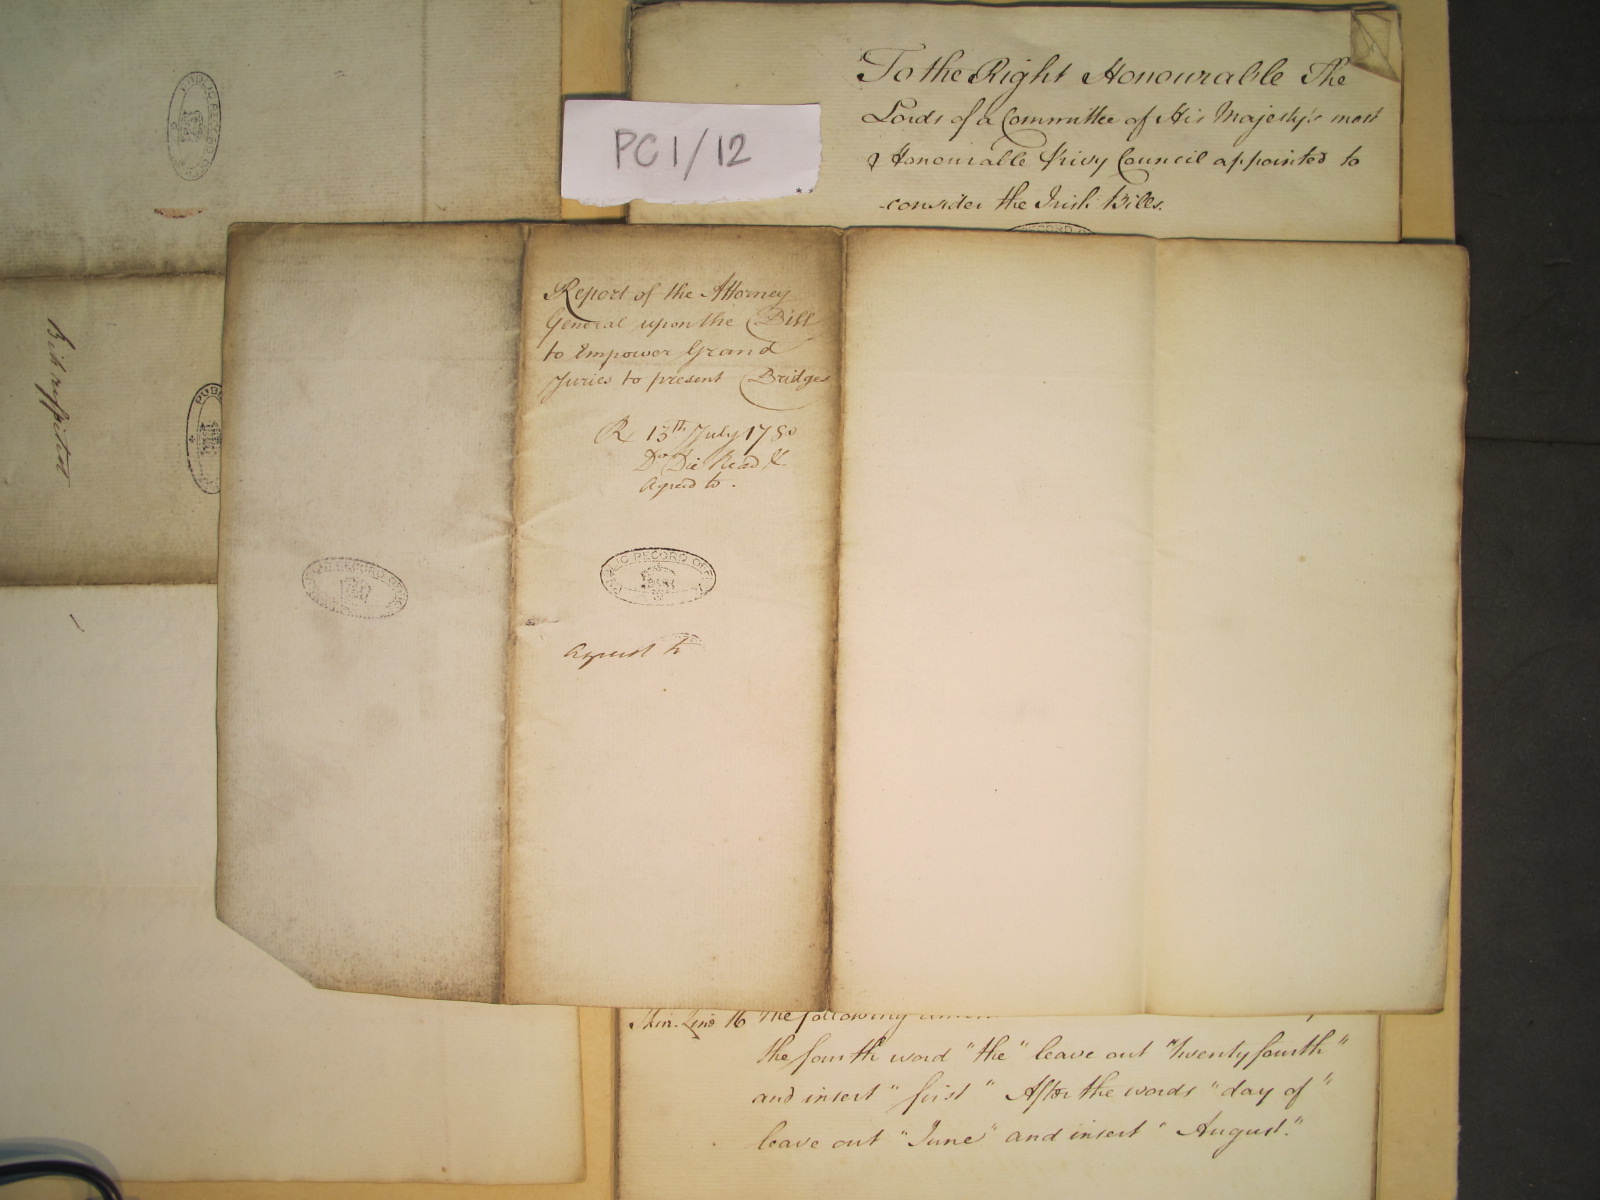 To the Right Honourable The
Lords of a Committee of His Majesty's most
Honourable Privy Council appointed to
consider the Irish Bills.
PC1/12
Report of the Attorney
General upon the Bill
to Empower Grand
Juries to present Bridges
R 13th July 1780
Do Die Read &
Agreed to.
PUBLIC RECORD OFFICE
agreed to
Skin. Line 16 The following
the fourth word "the" leave out "twenty fourth"
and insert "first" After the words "day of"
leave out "June" and insert "August."